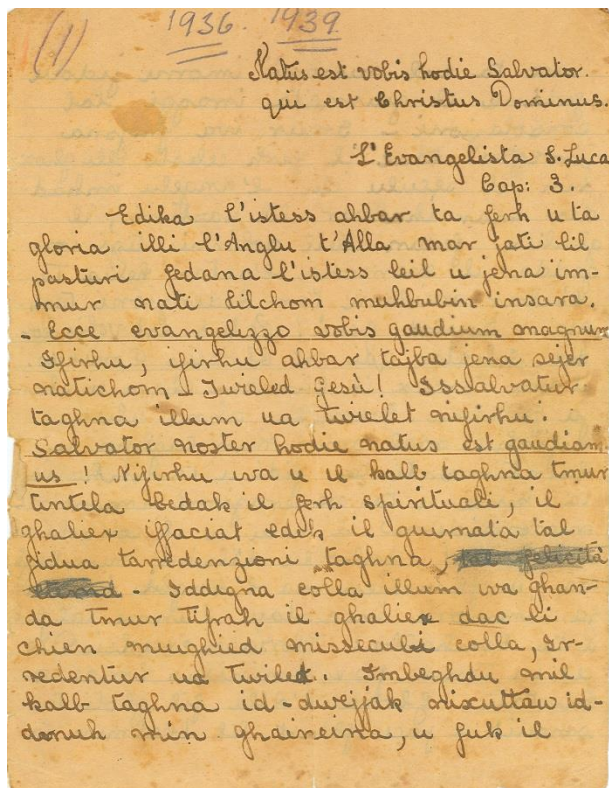 (1) 1936. 1939.
Natus est vobis hodie Salvator.
qui est Christus Dominus.
L'Evangelista S. Luca
Cap: 3.
Edika l'istess ahbar ta ferh u ta
gloria illi l'Anglu t'Alla mar jati lil
pasturi fedana l'istess leil u jena im-
mur nati lilchom muhbubin insara.
- Ecce evangelizzo vobis gaudium magnum
Ifirhu, ifirhu ahbar tajba jena sejer
natichom - Twieled Gesù! Issalvatur
taghna illum ua twielet nifirhu.
Salvator noster hodie natus est gaudiam-
us! Nifirhu wa u il kalb taghna tmur
tintela bedak il ferh spirituali, il
ghaliex iffaciat edik il guirnata tal
fidua tarredenzioni taghna, tal felicità
- Iddigna colla illum wa ghan-
da tmur tifrah il ghaliex dac li
chien muighied missecula colla, Ir-
redentur ua twiled. Imbeghdu mil
kalb taghna id-dwejjak mixuttaw id-
dmuh min ghaineina, u fuk il